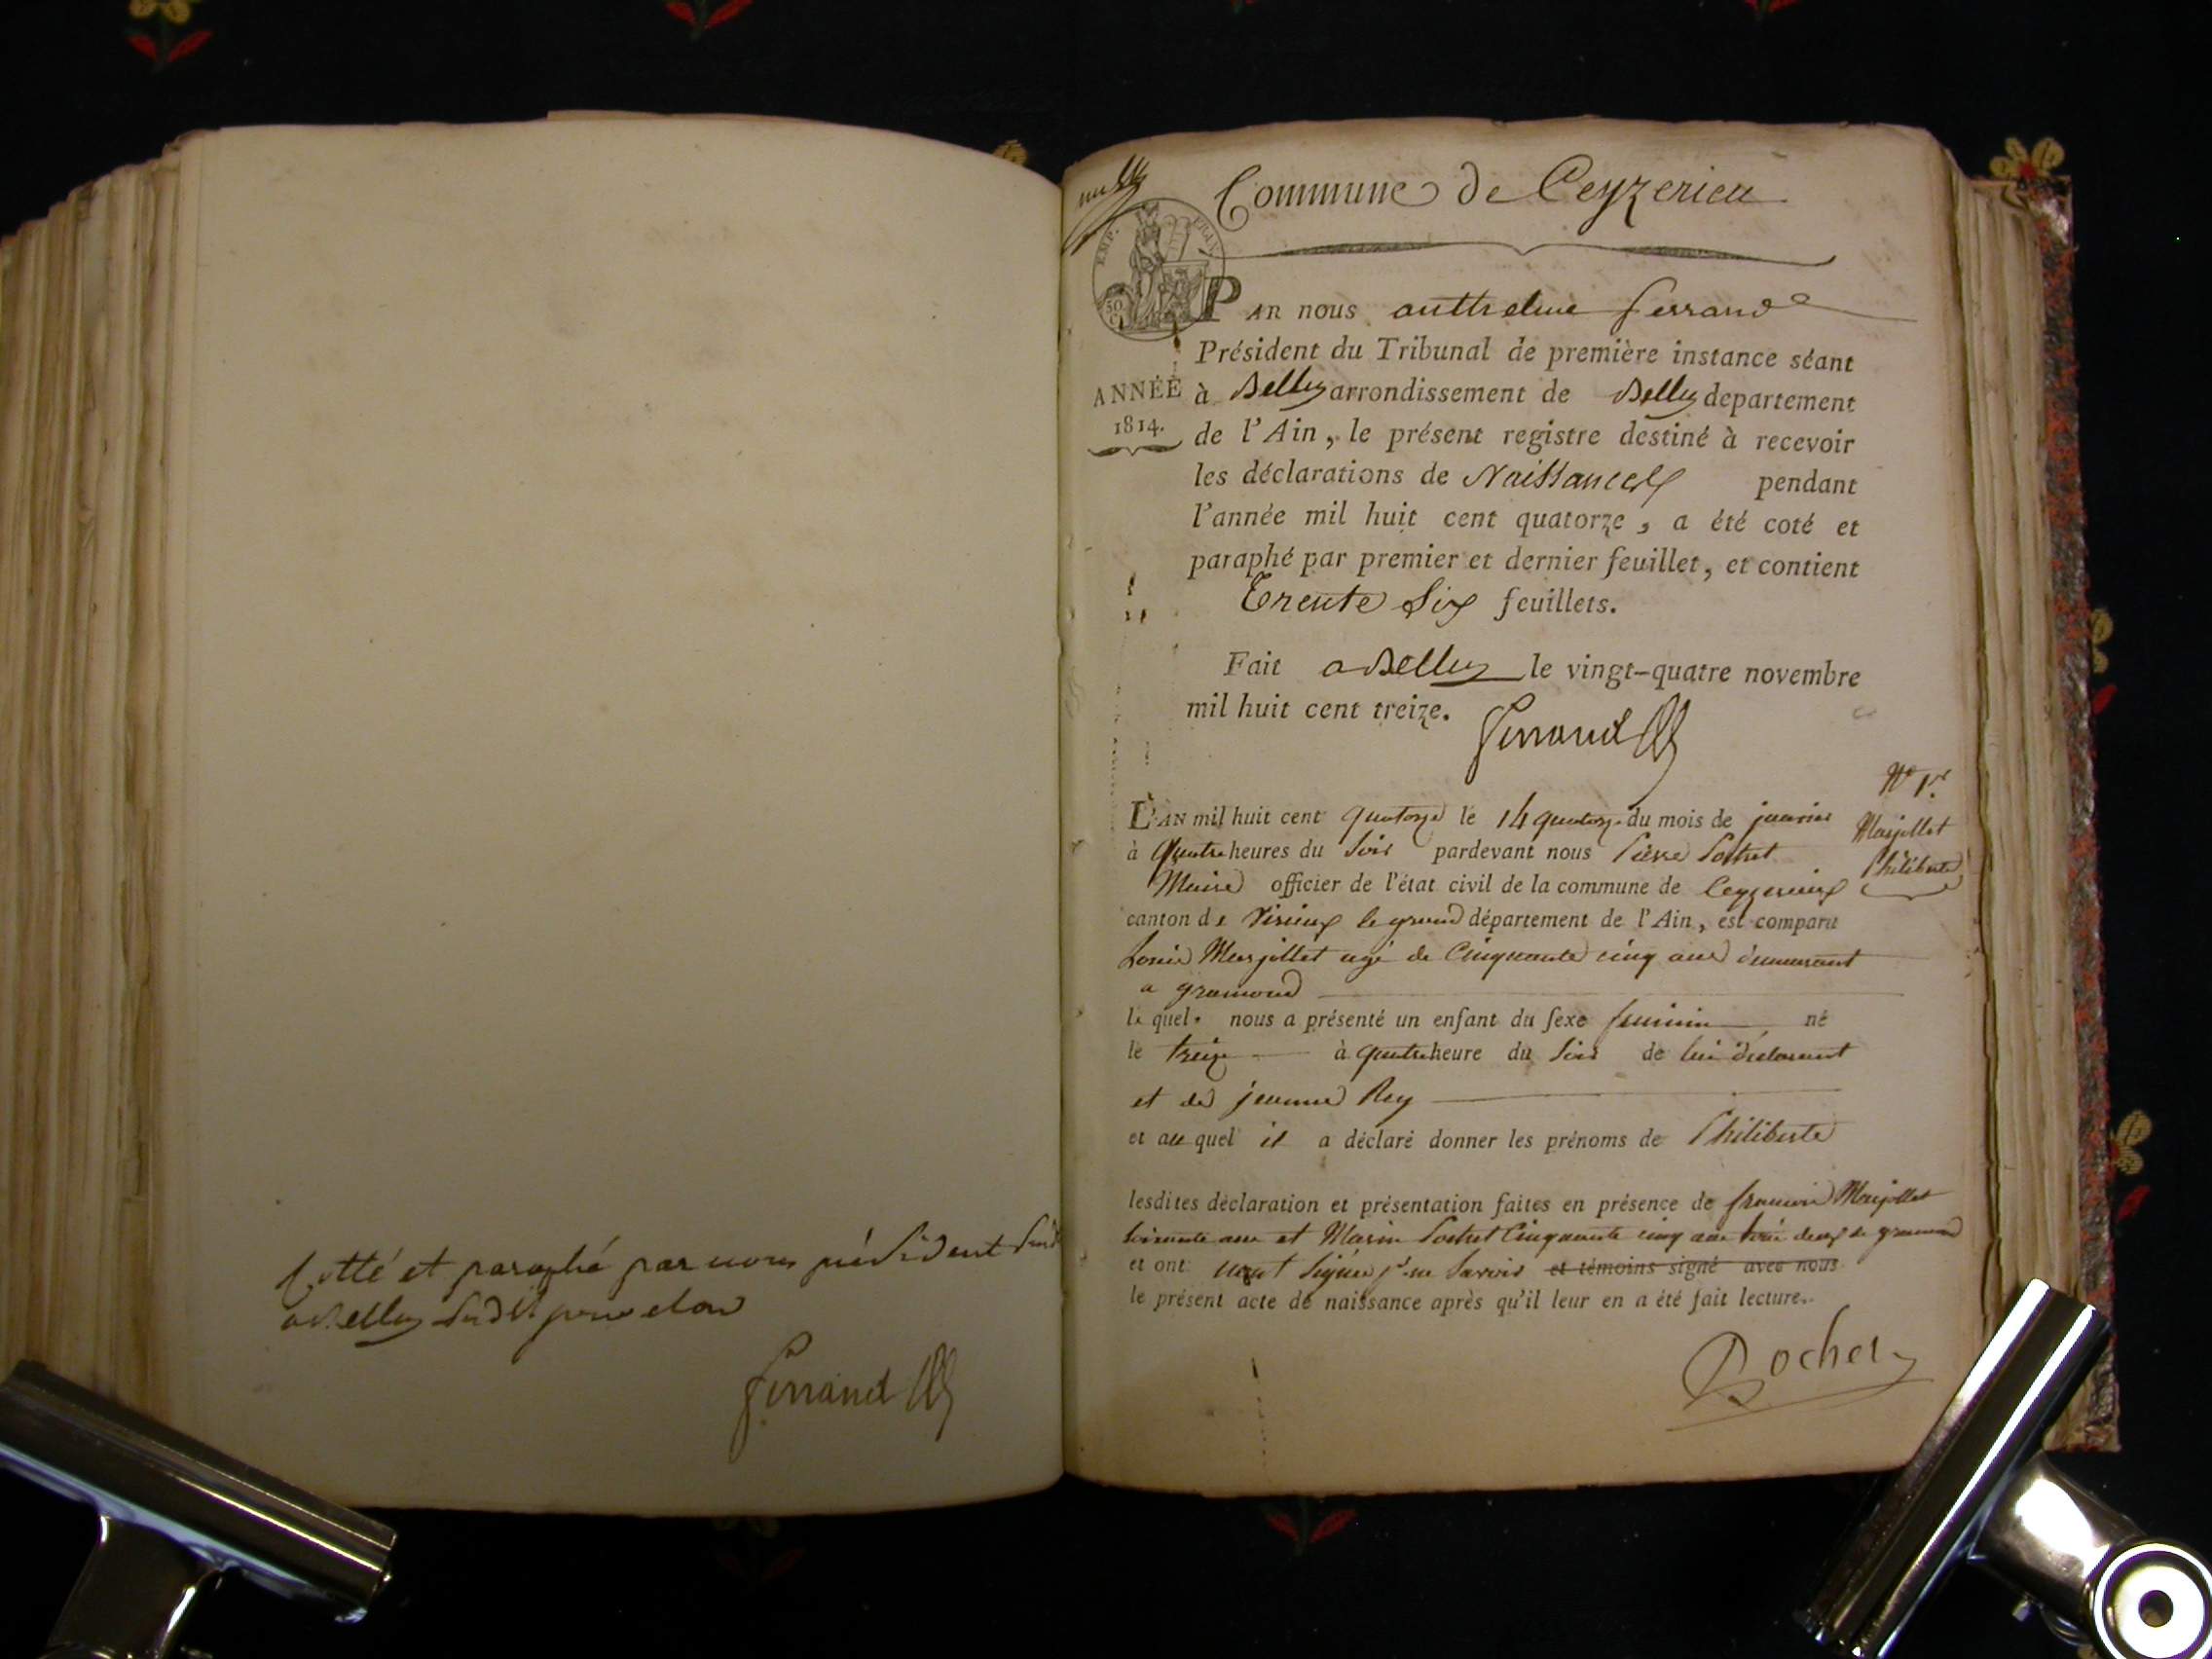 Cotté et paraphé par nous président susd
a Belley susdits jour et an
Ferrand
Commune de Ceyzerieu
EMP. FRAN
50 C
PAR nous anthelme ferrand
Président du Tribunal de première instance séant
ANNÉE
1814.
à Belley arrondissement de Belley departement
de l'Ain, le présent registre destiné à recevoir
les déclarations de Naissances pendant
l'année mil huit cent quatorze, a été coté et
paraphé par premier et dernier feuillet, et contient
Trente Six feuillets.
Fait a Belley le vingt-quatre novembre
mil huit cent treize.
Ferrand
N° 1er
Marjollet
Philiberte
L'AN mil huit cent quatorze le 14 quatorze du mois de janvier
à quatre heures du soir pardevant nous Pierre Pochet
Maire officier de l'état civil de la commune de Ceyzerieux
canton de Virieux le grand département de l'Ain, est comparu
Louis Marjollet agé de Cinquante cinq ans demeurant
a gramond
le quel nous a présenté un enfant du sexe feminin né
le treize à quatre heure du soir de lui déclarant
et de jeanne Rey
et au quel il a déclaré donner les prénoms de Philiberte
lesdites déclaration et présentation faites en présence de francois Marjollet
soixante ans et Marin Pochet Cinquante cinq ans tous deux de gramond
et ont nont signés pr ne savoir et témoins signé avec nous
le présent acte de naissance après qu'il leur en a été fait lecture.
Pochet